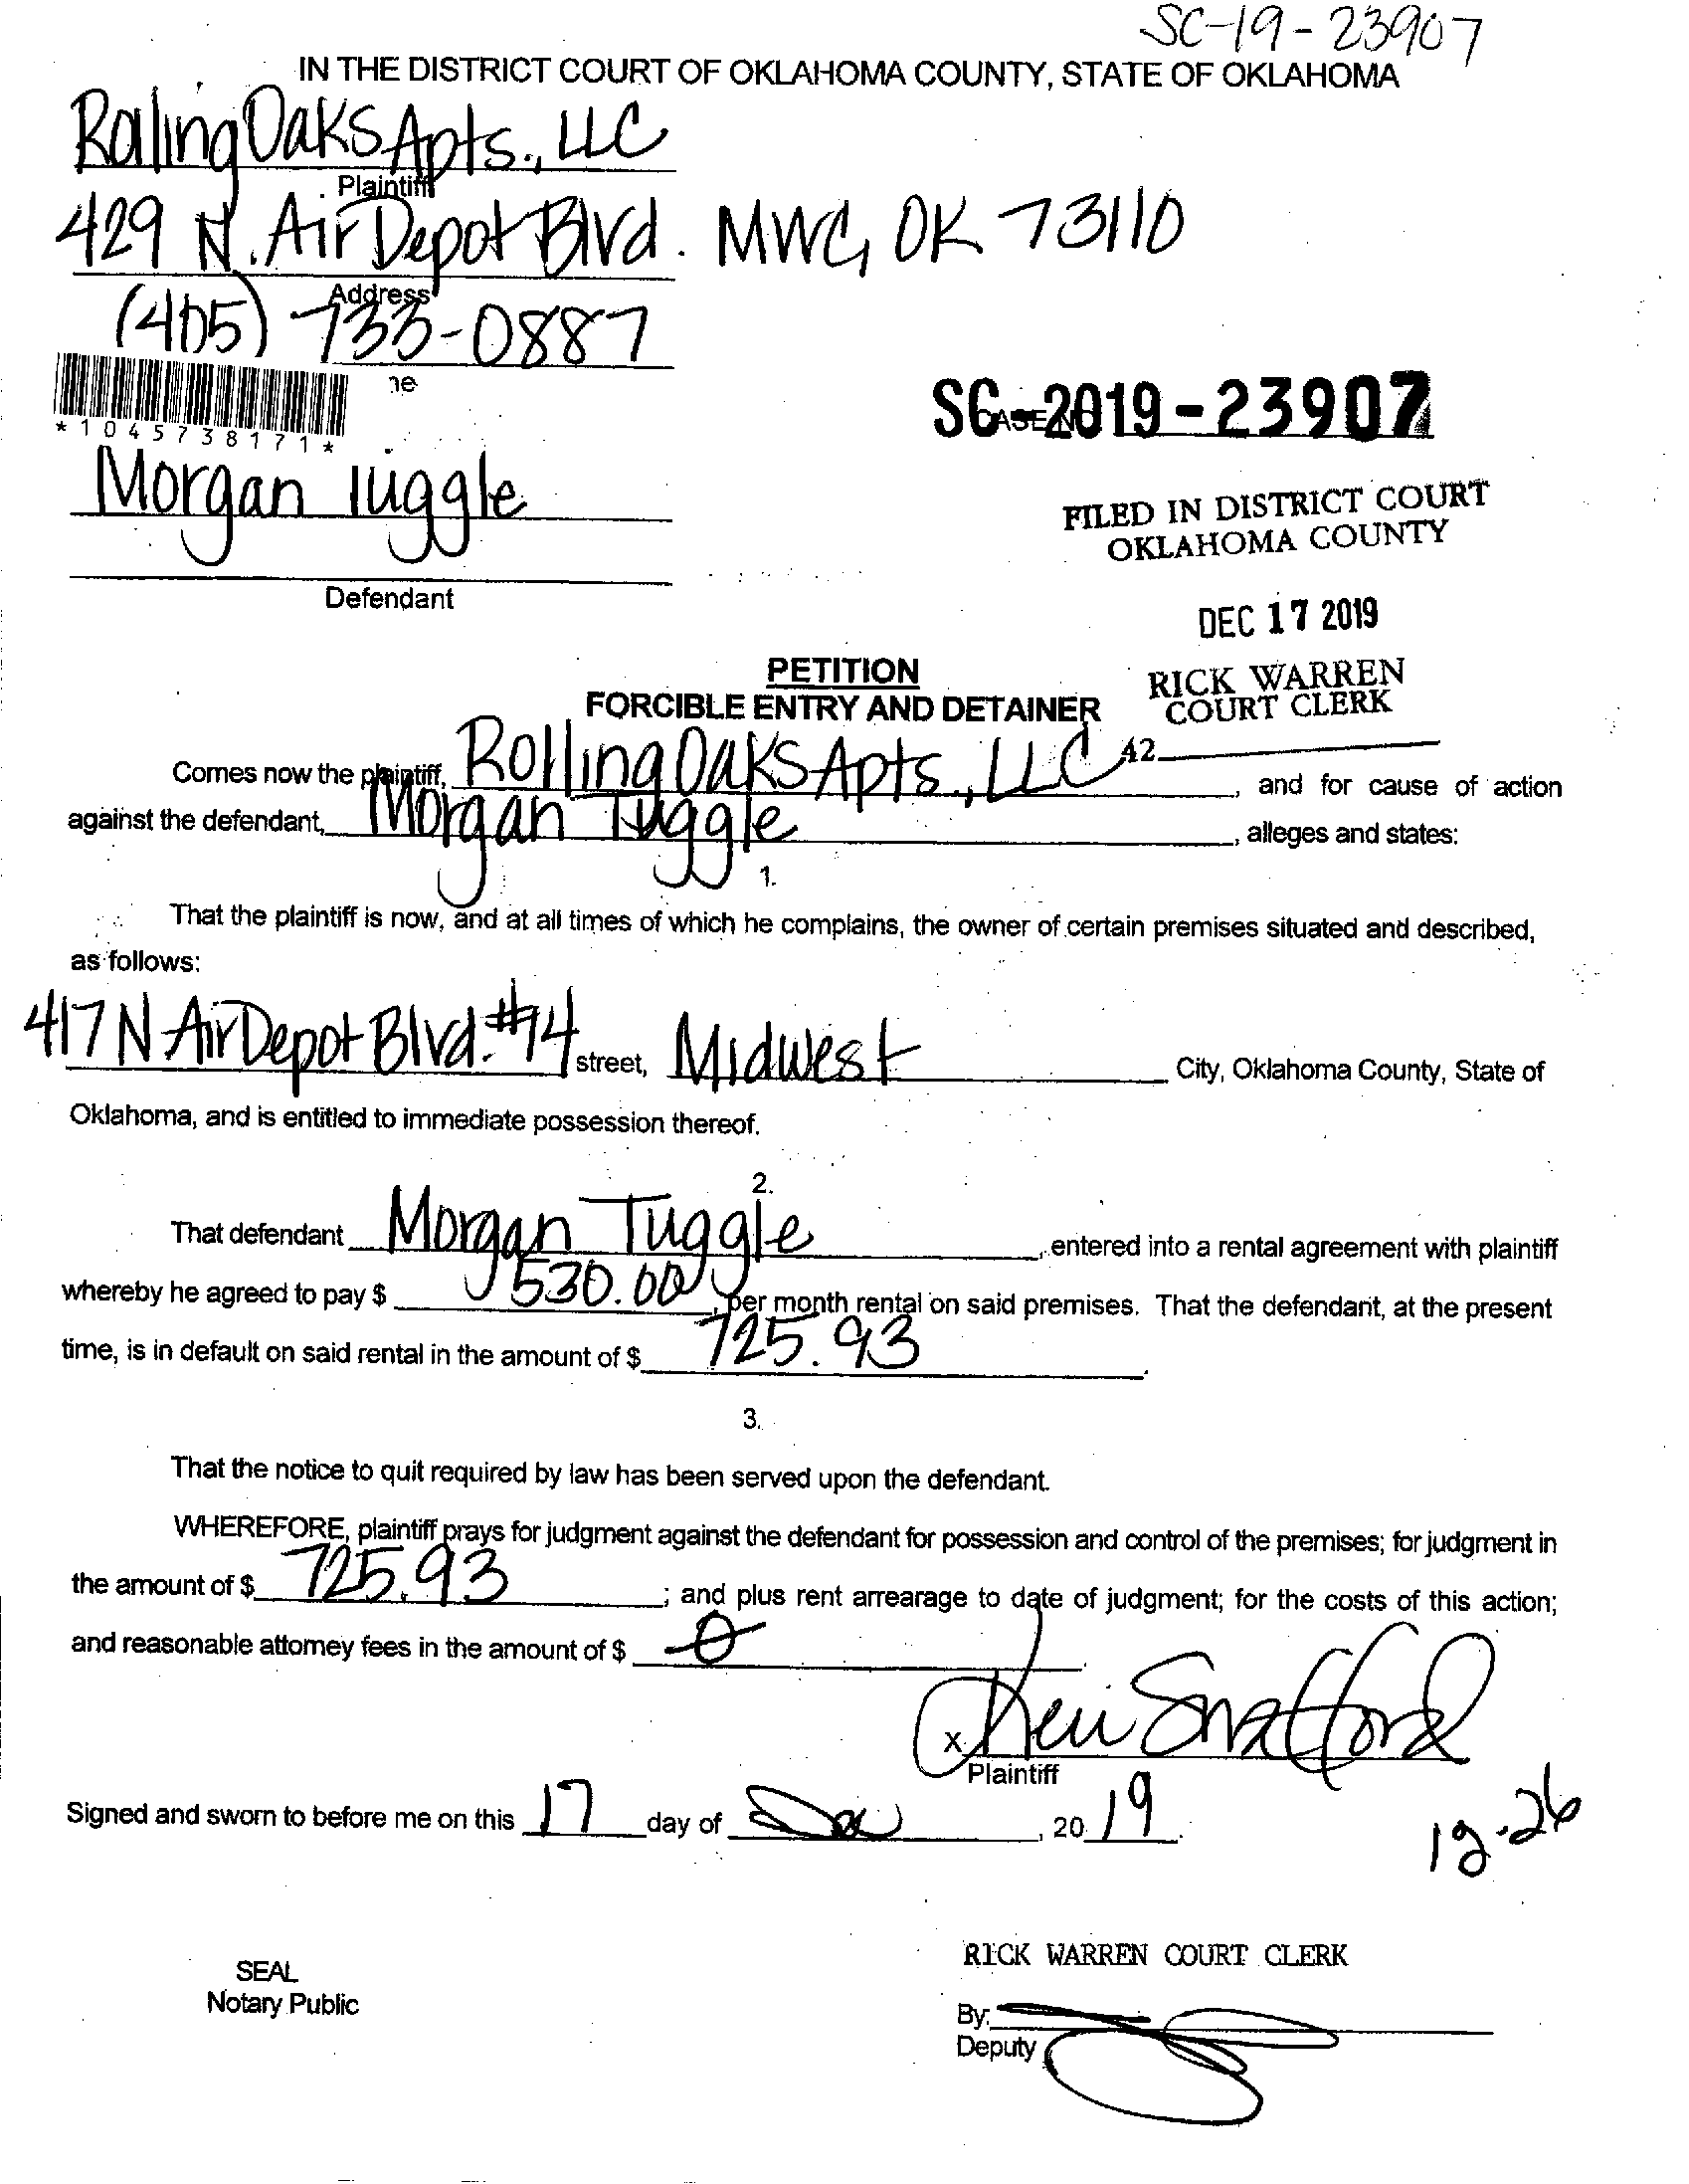 SC-19-23907
IN THE DISTRICT COURT OF OKLAHOMA COUNTY, STATE OF OKLAHOMA
Rolling Oaks Apts., LLC
Plaintiff
429 N. Air Depot Blvd. MWC, OK 73110
Address
(405) 733-0887
ne
*1045738171*
SC-2019-23907
CASE NO
Morgan Tuggle
Defendant
FILED IN DISTRICT COURT
OKLAHOMA COUNTY
DEC 17 2019
RICK WARREN
COURT CLERK
42
PETITION
FORCIBLE ENTRY AND DETAINER
Comes now the plaintiff, Rolling Oaks Apts., LLC, and for cause of action
against the defendant, Morgan Tuggle, alleges and states:
1.
That the plaintiff is now, and at all times of which he complains, the owner of certain premises situated and described,
as follows:
417 N Air Depot Blvd. #74 street, Midwest City, Oklahoma County, State of
Oklahoma, and is entitled to immediate possession thereof.
2.
That defendant Morgan Tuggle, entered into a rental agreement with plaintiff
whereby he agreed to pay $ 530.00, per month rental on said premises. That the defendant, at the present
time, is in default on said rental in the amount of $ 725.93.
3.
That the notice to quit required by law has been served upon the defendant.
WHEREFORE, plaintiff prays for judgment against the defendant for possession and control of the premises; for judgment in
the amount of $ 725.93; and plus rent arrearage to date of judgment; for the costs of this action;
and reasonable attorney fees in the amount of $ 0
X
Plaintiff
Signed and sworn to before me on this 17 day of Dec, 20 19.
12-26
SEAL
Notary Public
RICK WARREN COURT CLERK
By:
Deputy